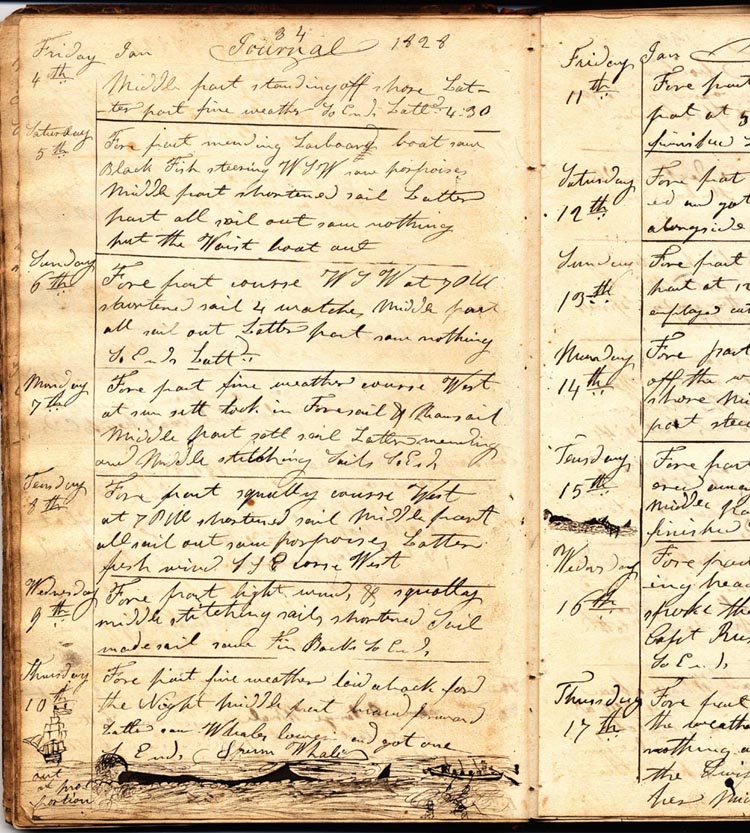 34
Journal 1828
Friday Jan
4th
Middle part standing off shore Lat-
ter part fine weather So Ends Latt 4:30
Saturday
5th
Fore part mending Larboard boat saw
Black Fish steering WSW saw porpoises
Middle part shortened sail Latter
part all sail out saw nothing
put the Waist boat out
Sunday
6th
Fore part course WSW at 7 PM
shortened sail 4 watches Middle part
all sail out Latter part saw nothing
So Ends Latt
Monday
7th
Fore part fine weather course West
at sun sett took in Foresail &
Middle part sett sail Latter mending
and Middle stitching Sails So Ends
Teusday
8th
Fore part squally course West
at 7 PM shortened sail Middle part
all sail out saw porpoises Latter
fresh wind SSE corse West
Wednesday
9th
Fore part light winds & squally
middle stitching sails shortened Sail
made sail saw Fin Backs So Ends
Thursday
10th
Fore part fine weather laid aback for
the Night Middle part forward
Latter saw Whales and got one
So Ends Sperm Whale
out
of pro
portion
Friday Jan
11th
Fore part
part at 5
finished
Saturday
12th
Fore part
ed and got
alongside
Sunday
13th
Fore part
part at 12
employed
Munday
14th
Fore part
off the
shore
part
Teusday
15th
Fore part
Middle
finished
Wednsday
16th
Fore part
ing head
spoke the
Capt
So Ends
Thursday
17th
Fore part
the weather
nothing
the
her